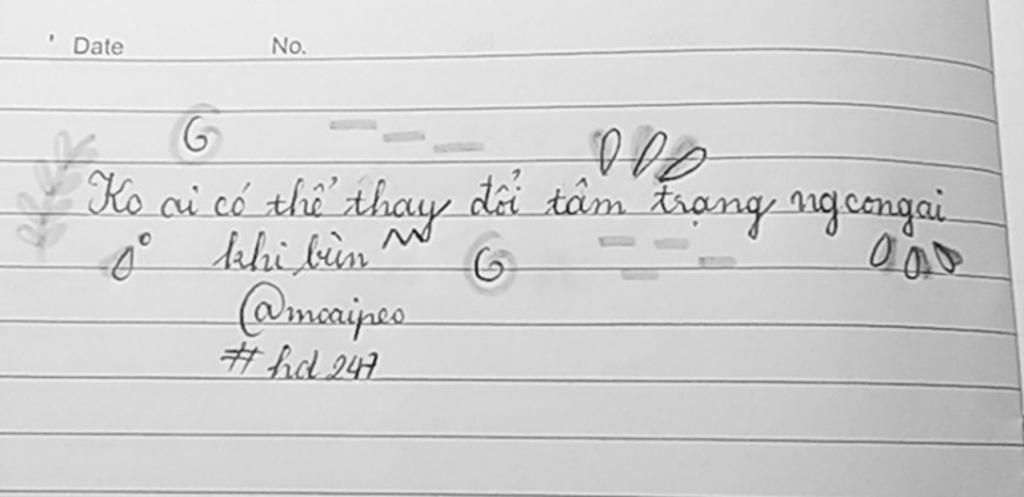 Date No.
Ko ai có thể thay đổi tâm trạng ngcongai
khi bùn
@mcaipeo
#hd247